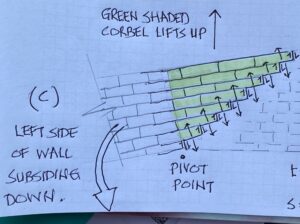 GREEN SHADED
CORBEL LIFTS UP
(C)
LEFT SIDE
OF WALL
SUBSIDING
DOWN.
PIVOT
POINT